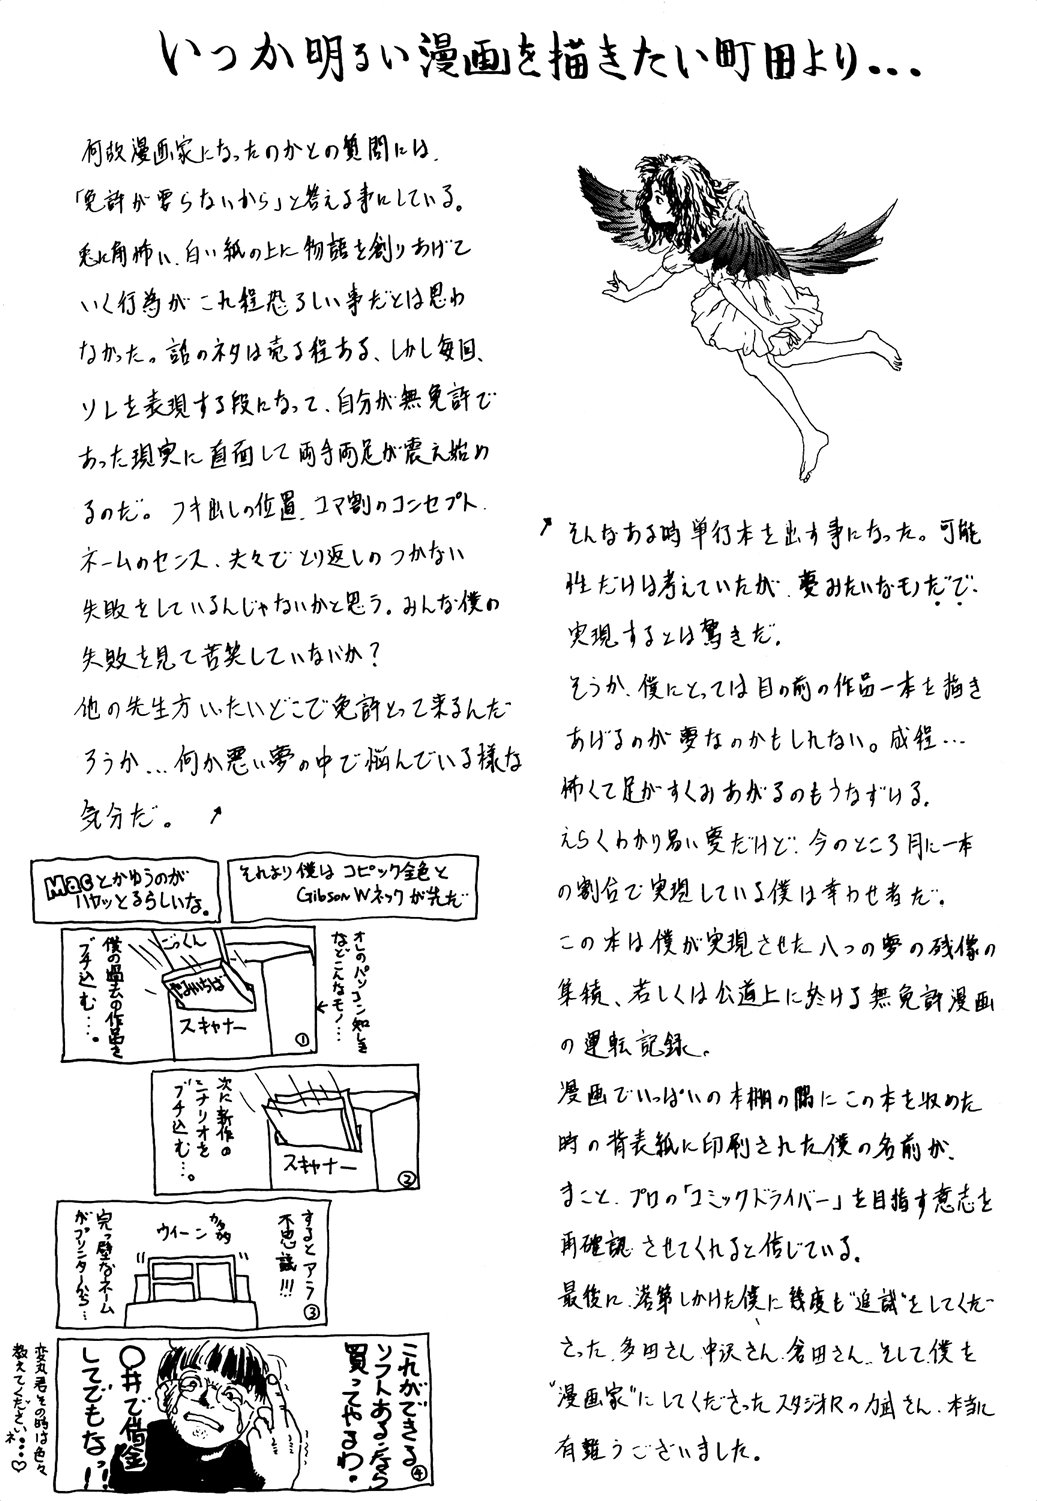 いつか明るい漫画を描きたい町田より...
何故漫画家になったのかとの質問には、
「免許が要らないから」と答える事にしている。
兎に角怖い、白い紙の上に物語を創りあげて
いく行為がこれ程恐ろしい事だとは思わ
なかった。話のネタは売る程ある、しかし毎回、
ソレを表現する段になって、自分が無免許で
あった現実に直面して両手両足が震え始め
るのだ。フキ出しの位置、コマ割のコンセプト、
ネームのセンス、夫々でとり返しのつかない
失敗をしているんじゃないかと思う。みんな僕の
失敗を見て苦笑していないか?
他の先生方いったいどこで免許とって来るんだ
ろうか...何か悪い夢の中で悩んでいる様な
気分だ。↗
↗そんなある時単行本を出す事になった。可能
性だけは考えていたが、夢みたいなモノだで、
実現するとは驚きだ。
そうか、僕にとっては目の前の作品一本を描き
あげるのが夢なのかもしれない。成程...
怖くて足がすくみあがるのもうなずける。
えらくわかり易い夢だけど、今のところ月に一本
の割合で実現している僕は幸わせ者だ。
この本は僕が実現させた八つの夢の残像の
集積、若しくは公道上に於ける無免許漫画
の運転記録。
漫画でいっぱいの本棚の隅にこの本を収めた
時の背表紙に印刷された僕の名前が、
まこと、プロの「コミックドライバー」を目指す意志を
再確認させてくれると信じている。
最後に、落第しかけた僕に幾度も"追試"をしてくだ
さった、多田さん、中沢さん、倉田さん、そして僕を
"漫画家"にしてくださったスタジオRの力武さん、本当に
有難うございました。
Macとかゆうのが
ハヤッとるらしいな。
それより僕はコピック金色と
Gibson Wネックが先だ
オレのパソコン知しき
などこんなモノ...
ごっくん
やみいちば
スキャナー
僕の過去の作品を
ブチ込む...。
①
次に新作の
シナリオを
ブチ込む...。
スキャナー
②
するとアラ
不思議!!!
ウィーン
カタカタ
完っ璧なネーム
がプリンターから...
③
これができる
ソフトあるなら
買ってやるわ。
④
〇井で借金
してでもなっ!!
変丸君その時は色々
教えてくださいネ...♡